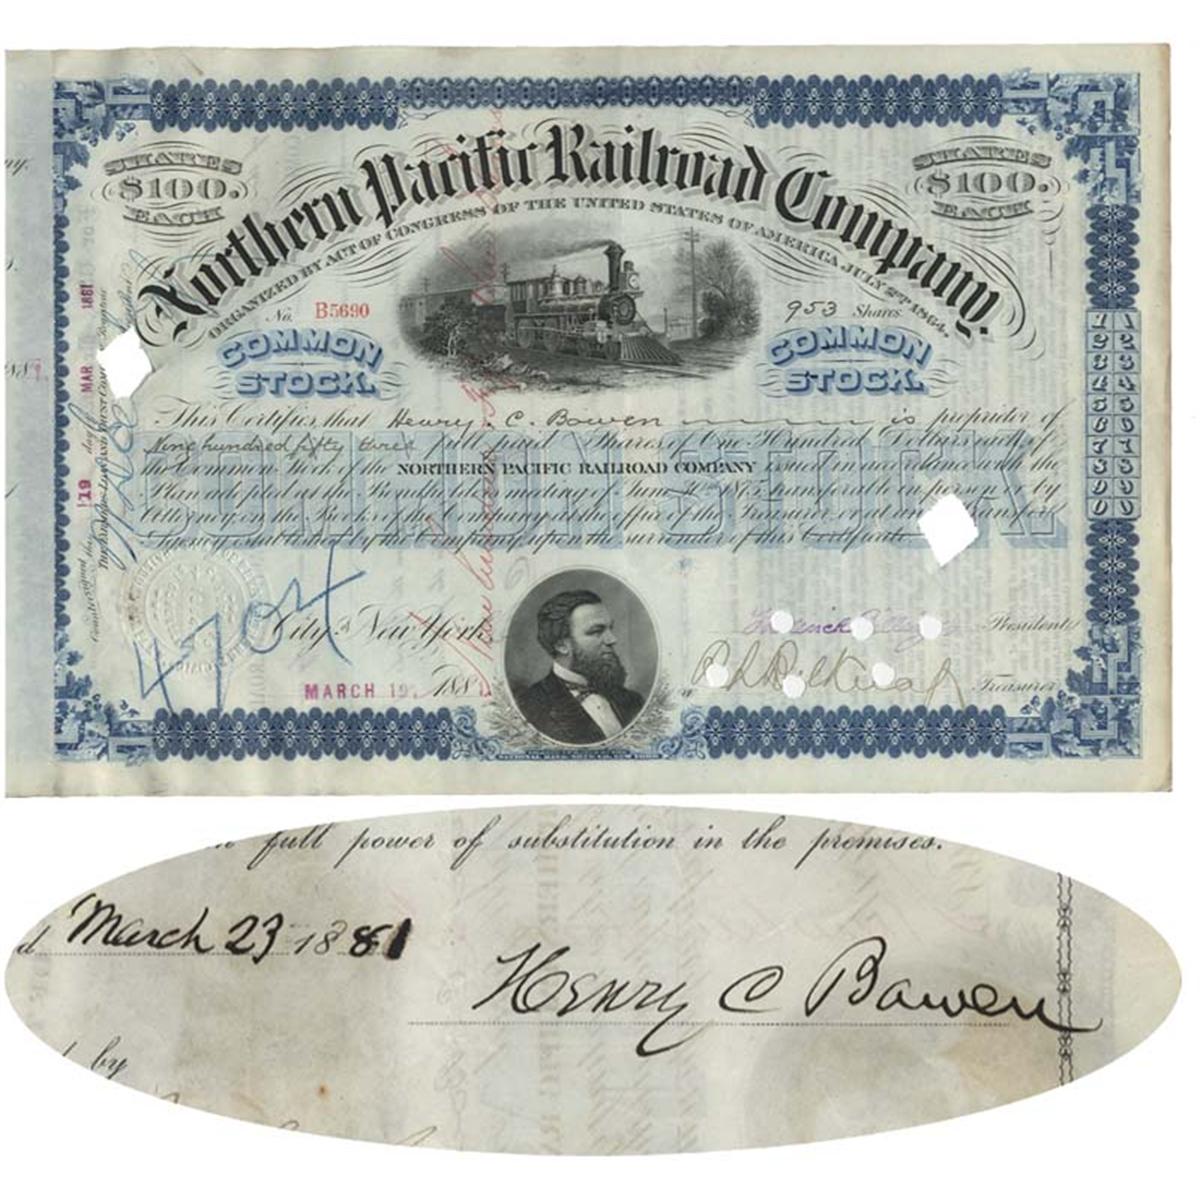 SHARES
$100.
EACH
SHARES
$100.
EACH
Northern Pacific Railroad Company.
ORGANIZED BY ACT OF CONGRESS OF THE UNITED STATES OF AMERICA JULY 2ND 1864.
No. B5690
953 Shares
COMMON
STOCK.
COMMON
STOCK.
This Certifies that Henry C. Bowen is proprietor of
Nine hundred fifty three full paid Shares of One Hundred Dollars each of
the Common Stock of the NORTHERN PACIFIC RAILROAD COMPANY issued in accordance with the
Plan adopted at the Bondholders meeting of June 30, 1875 transferable in person or by
Attorney, on the Books of the Company, at the office of the Treasurer or at any Transfer
Agency established by the Company, upon the surrender of this Certificate
COMMON STOCK.
1 1
2 2
3 3
4 4
5 5
6 6
7 7
8 8
9 9
0 0
Countersigned this 19 day of MAR 1881
4704
City of New York
MARCH 19, 1881
President
Treasurer
NATIONAL BANK NOTE CO. NEW YORK
full power of substitution in the premises.
d March 23 1881
Henry C Bowen
by